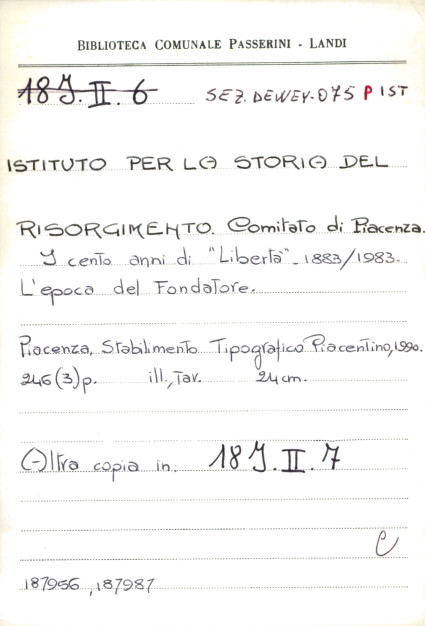 BIBLIOTECA COMUNALE PASSERINI - LANDI
18 J. II. 6 SEZ. DEWEY-075 PIST
ISTITUTO PER LA STORIA DEL
RISORGIMENTO. Comitato di Piacenza.
I cento anni di "Libertà" - 1883/1983.
L'epoca del Fondatore.
Piacenza, Stabilimento Tipografico Piacentino, 1990.
246 (3) p. ill., tav. 24 cm.
Altra copia in. 18 J. II. 7
C
187956, 187987